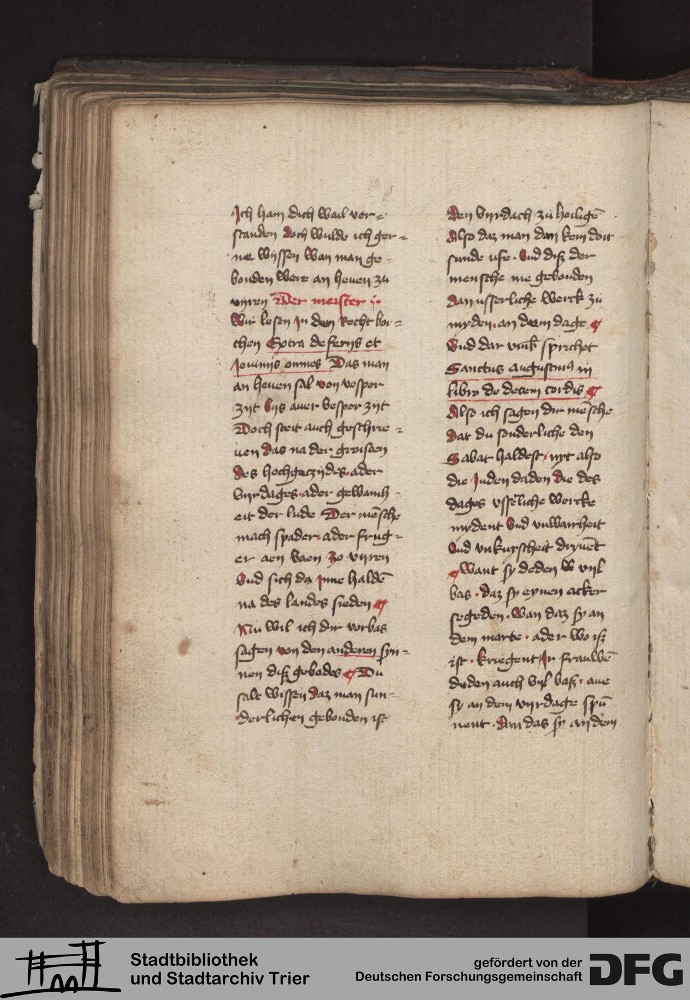 Ich han dich wail ver-
standen doch wulde ich ger-
ne wyssen Wan man ge-
bonden were an heuen zu
vyren Der meister
Wir lesen in dem Recht boi-
chen Extra de ferijs et
omnes Das man
an heuen sal von vesper
zijt bys auer vesper zijt
Doch steit auch geschrie-
uen Das na der groisden
des hochgezydes ader
vyrdages ader gewanh-
eit der lude Der mēsche
mach spader ader frug-
er aen vaen zo vyren
Vnd sich da Inne haldē
na des landes sieden
Nu wil ich dir vorbas
sagen von den anderen syn-
nen diß gebodes Du
salt wissen Daz man sun-
derlichen gebonden ist
Den vyrdach zu heiligē
Also daz man dan kein doit
sunde ufe Vnd diß der
mensche me gebonden
Dan usserliche werck zu
myden an dem dage
Vnd dar vmb sprichet
Sanctus augustinus in
libro de decem cordis
Also ich sagen dir mēsche
Dat du sonderliche den
Sabat haldest nyt also
die Juden daden die des
dages vsseliche wercke
mydent Vnd vnwairheit
Vnd vnkuyscheit dryuēt
Want sy deden vyl
bas daz sy eynen acker
segeden Wan daz sy an
dem marte ader wo iß
ist kriegent Ir frauwē
deden auch vyl baß aue
sy an dem vyrdage spū
nent Dan das sy an dem
Stadtbibliothek
und Stadtarchiv Trier
gefördert von der
Deutschen Forschungsgemeinschaft
DFG